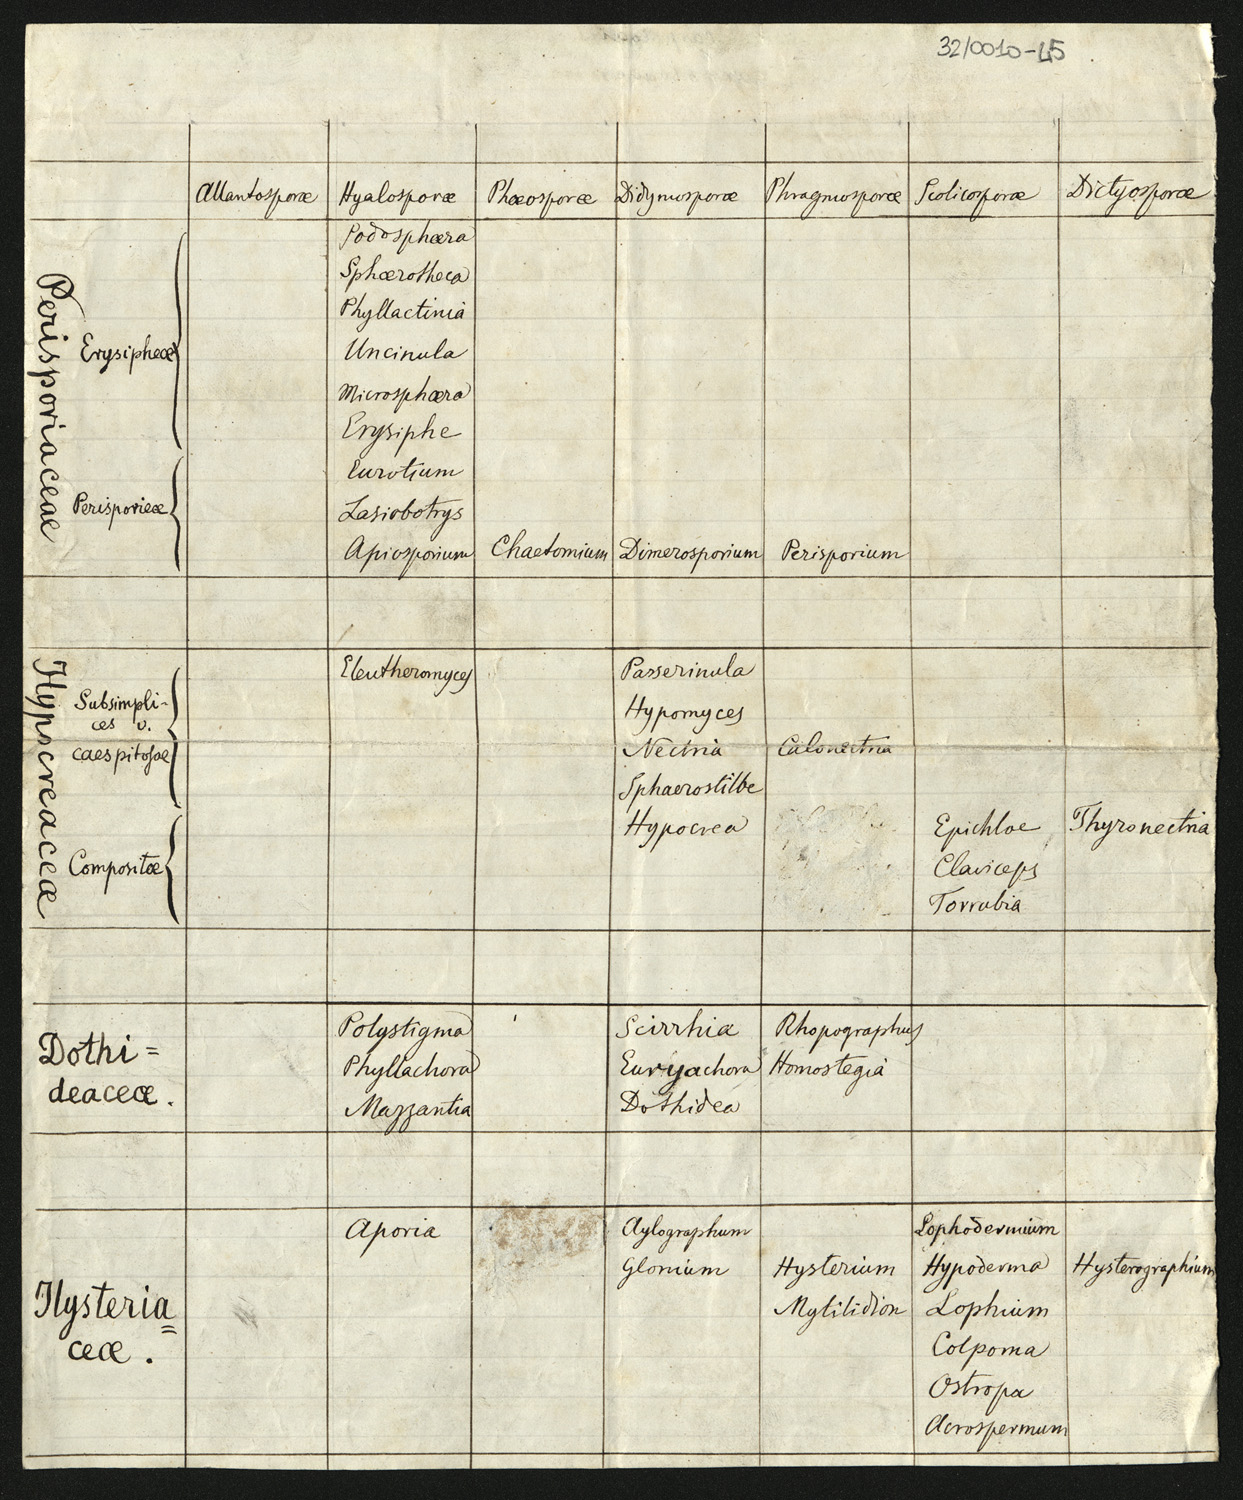 32/0010-45
Allantosporæ Hyalosporæ Phæosporæ Didymosporæ Phragmosporæ Scolicosporæ Dictyosporæ
Perisporiaceae
Erysipheæ
Podosphæra
Sphærotheca
Phyllactinia
Uncinula
Microsphæra
Erysiphe
Perisporieæ
Eurotium
Lasiobotrys
Apiosporium Chaetomium Dimerosporium Perisporium
Hypocreaceæ
Subsimpli-
ces v.
caespitosae
Eleutheromyces Passerinula
Hypomyces
Nectria Calonectria
Sphaerostilbe
Compositæ
Hypocrea Epichloe Thyronectria
Claviceps
Torrubia
Dothi=
deaceæ.
Polystigma Scirrhia Rhopographus
Phyllachora Euryachora Homostegia
Mazzantia Dothidea
Hysteria=
ceæ.
Aporia Aylographum Lophodermium
Glonium Hysterium Hypoderma Hysterographium
Mytilidion Lophium
Colpoma
Ostropa
Acrospermum